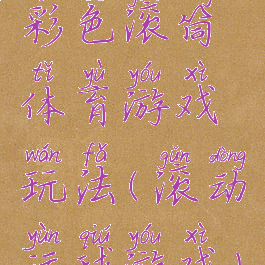 彩色滚筒
tǐ yù yóu xì
体育游戏
wán fǎ gǔn dòng
玩法(滚动
yùn qiú yóu xì
运球游戏)